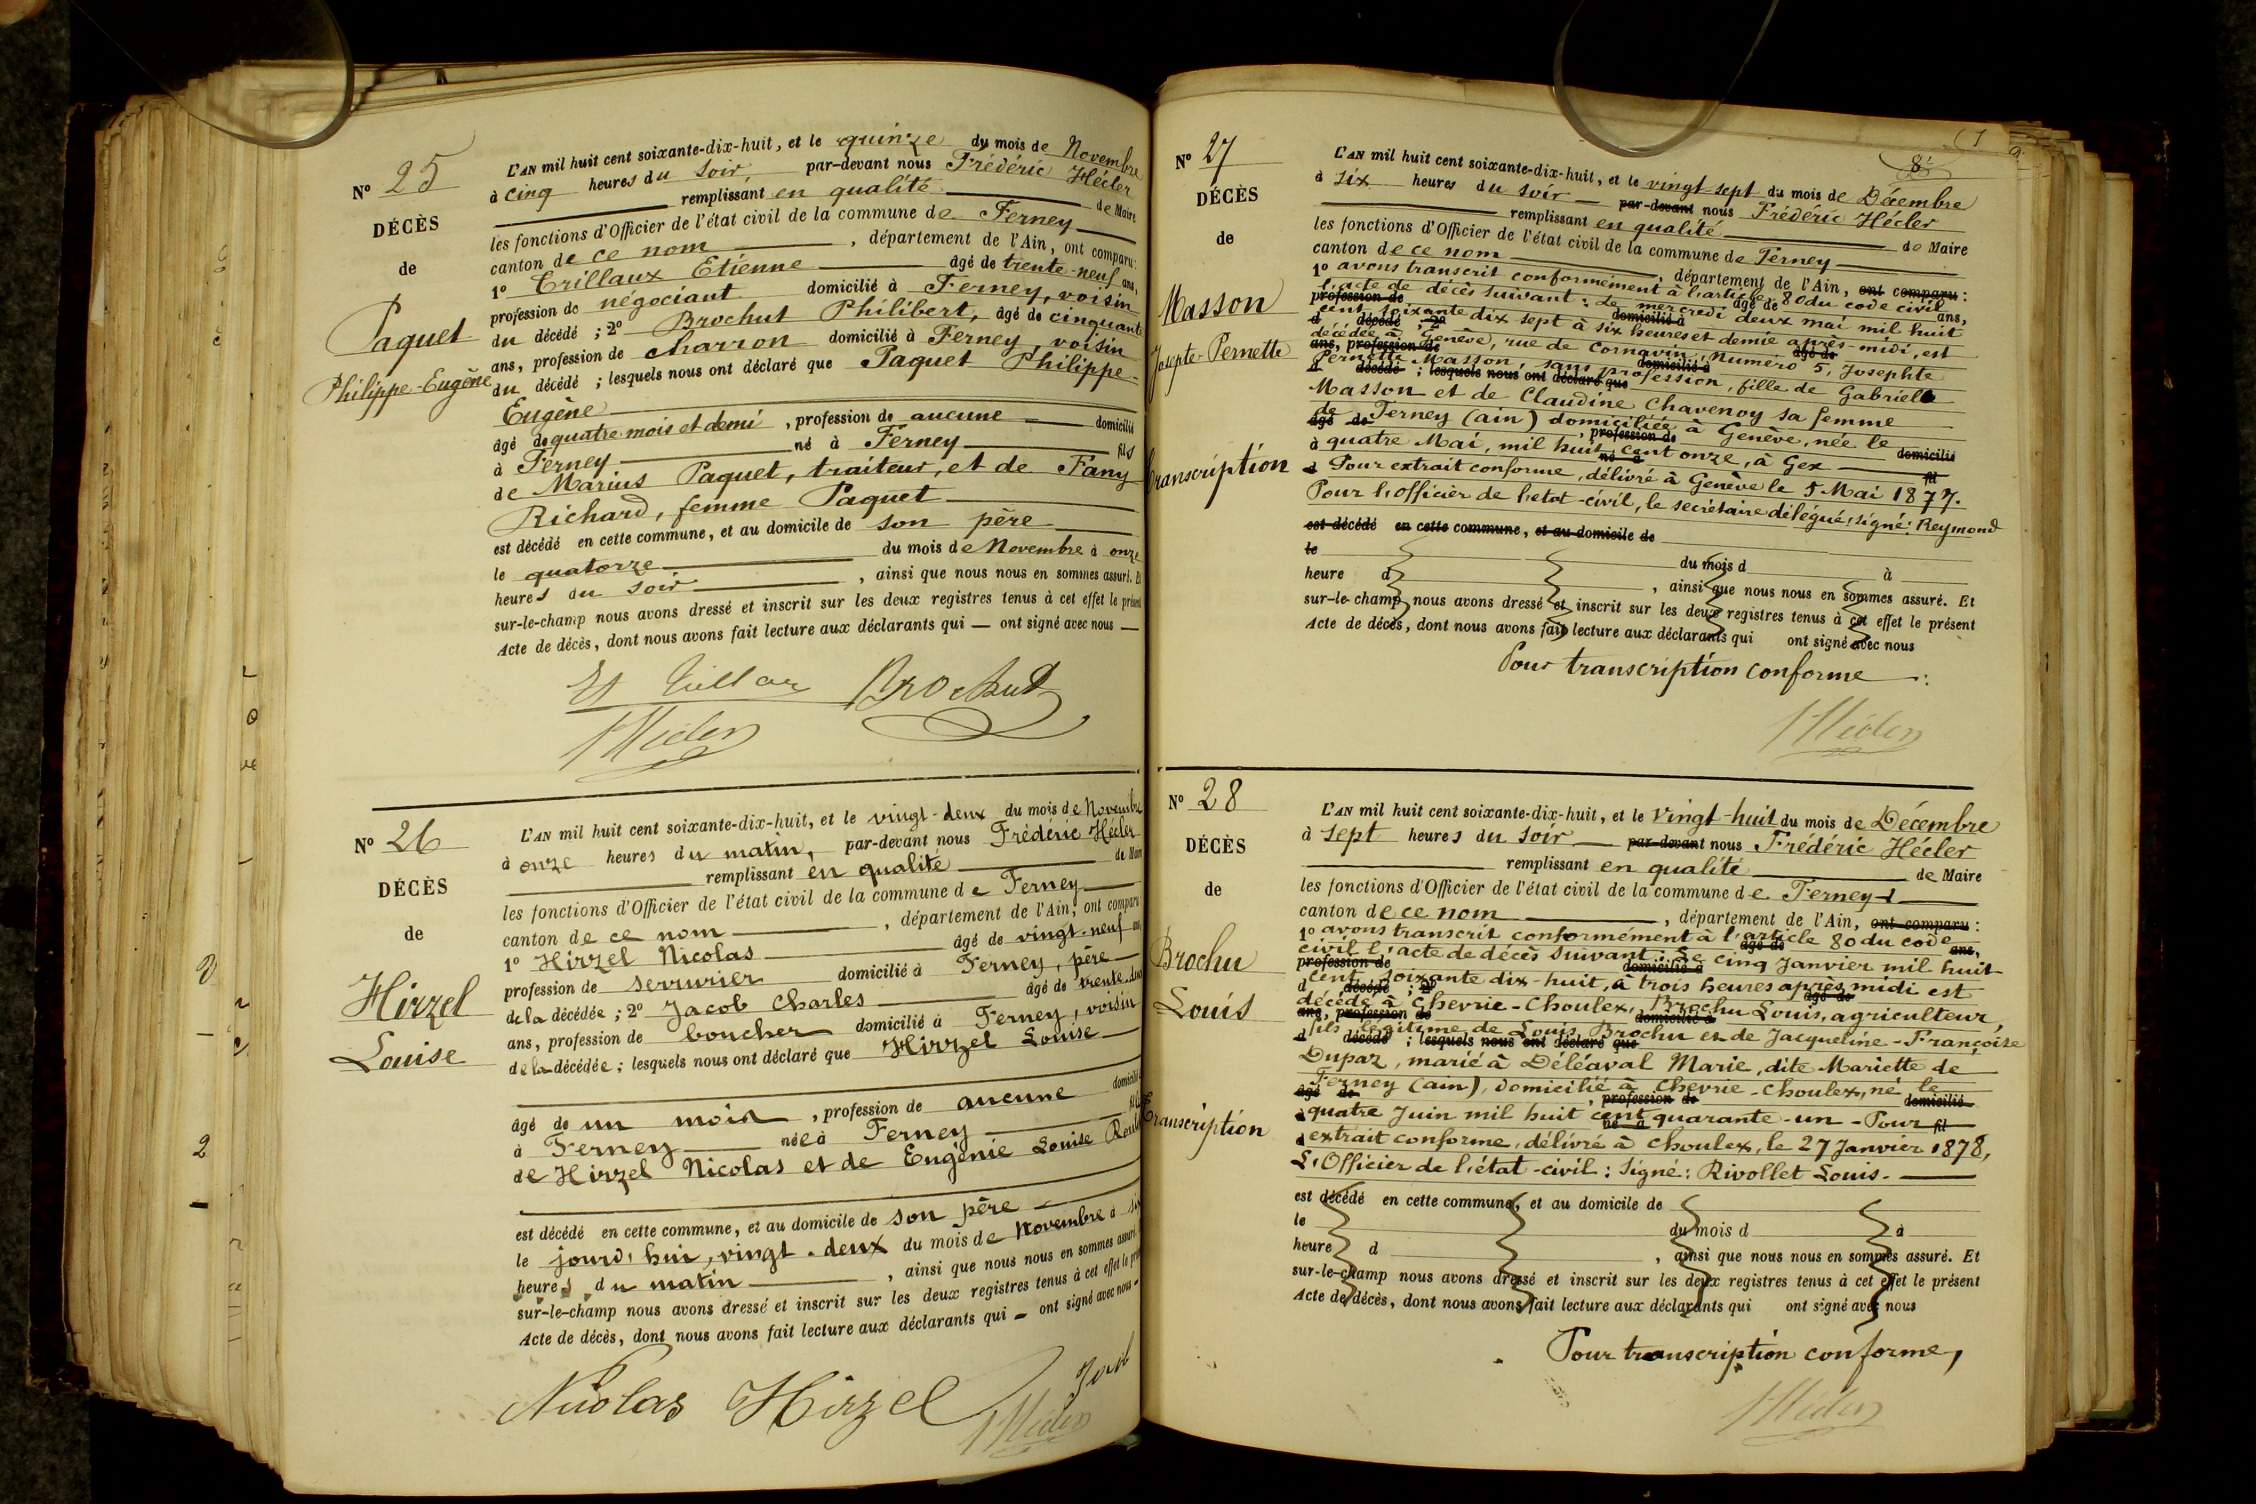 N° 25
DÉCÈS
de
Paquet
Philippe-Eugène
L'AN mil huit cent soixante-dix-huit, et le quinze du mois de Novembre
à cinq heures du soir, par-devant nous Frédéric Hécler
remplissant en qualité de Maire
les fonctions d'Officier de l'état civil de la commune de Ferney
canton de ce nom, département de l'Ain, ont comparu:
1° Trillaux Etienne âgé de trente-neuf ans,
profession de négociant domicilié à Ferney, voisin
du décédé ; 2° Brochut Philibert, âgé de cinquante
ans, profession de charron domicilié à Ferney, voisin
du décédé ; lesquels nous ont déclaré que Paquet Philippe-
Eugène
âgé de quatre mois et demi, profession de aucune domicilié
à Ferney né à Ferney fils
de Marius Paquet, traiteur, et de Fany
Richard, femme Paquet
est décédé en cette commune, et au domicile de son père
le quatorze du mois de Novembre à onze
heures du soir, ainsi que nous nous en sommes assuré. Et
sur-le-champ nous avons dressé et inscrit sur les deux registres tenus à cet effet le présent
Acte de décès, dont nous avons fait lecture aux déclarants qui — ont signé avec nous —
Brochut
FHécler
N° 26
DÉCÈS
de
Hirzel
Louise
L'AN mil huit cent soixante-dix-huit, et le vingt-deux du mois de Novembre
à onze heures du matin, par-devant nous Frédéric Hécler
remplissant en qualité de Maire
les fonctions d'Officier de l'état civil de la commune de Ferney
canton de ce nom, département de l'Ain, ont comparu
1° Hirzel Nicolas âgé de vingt-neuf ans
profession de serrurier domicilié à Ferney, père
de la décédée ; 2° Jacob Charles âgé de trente-deux
ans, profession de boucher domicilié à Ferney, voisin
de la décédée ; lesquels nous ont déclaré que Hirzel Louise
âgé de un mois, profession de aucune domicilié
à Ferney née à Ferney
de Hirzel Nicolas et de Eugénie Louise
est décédé en cette commune, et au domicile de son père
le jourd'hui, vingt-deux du mois de Novembre à six
heures du matin, ainsi que nous nous en sommes assuré.
sur-le-champ nous avons dressé et inscrit sur les deux registres tenus à cet effet le
Acte de décès, dont nous avons fait lecture aux déclarants qui — ont signé avec nous —
Nicolas Hirzel Jacob
FHécler
N° 27
DÉCÈS
de
Masson
Josepte-Pernette
Transcription
L'AN mil huit cent soixante-dix-huit, et le vingt sept du mois de Décembre
à six heures du soir — par-devant nous Frédéric Hécler
remplissant en qualité de Maire
les fonctions d'Officier de l'état civil de la commune de Ferney
canton de ce nom, département de l'Ain, ont comparu :
1° avons transcrit conformément à l'article 80 du code civil
l'acte de décès suivant : Le mercredi deux mai mil huit
cent soixante dix sept à six heures et demie après-midi, est
décédée à Genève, rue de Cornavin, Numéro 5, Josephte
Pernette Masson, sans profession, fille de Gabriel
Masson et de Claudine Chavenoy sa femme
de Ferney (ain) domiciliée à Genève, née le
quatre Mai, mil huit cent onze, à Gex
Pour extrait conforme, délivré à Genève le 5 Mai 1877.
Pour l'officier de l'etat-civil, le secrétaire délégué, signé: Reymond
est décédé en cette commune, et au domicile de
le du mois d à
heure d, ainsi que nous nous en sommes assuré. Et
sur-le-champ nous avons dressé et inscrit sur les deux registres tenus à cet effet le présent
Acte de décès, dont nous avons fait lecture aux déclarants qui ont signé avec nous
Pour transcription conforme :
FHécler
N° 28
DÉCÈS
de
Brochu
Louis
Transcription
L'AN mil huit cent soixante-dix-huit, et le Vingt-huit du mois de Décembre
à sept heures du soir — par-devant nous Frédéric Hécler
remplissant en qualité de Maire
les fonctions d'Officier de l'état civil de la commune de Ferney
canton de ce nom, département de l'Ain, ont comparu :
1° avons transcrit conformément à l'article 80 du code
civil l'acte de décès suivant : Le cinq Janvier mil huit
cent soixante dix-huit, à trois heures après midi est
décédé à Chevrie-Choulex, Brochu Louis, agriculteur,
fils légitime de Louis Brochu et de Jacqueline-Françoise
Dupaz, marié à Déléaval Marie, dite Mariette de
Ferney (ain), domicilié à Chevrie-Choulex, né le
quatre Juin mil huit cent quarante-un - Pour
extrait conforme, délivré à Choulex, le 27 Janvier 1878,
L'Officier de l'état-civil : signé: Rivollet Louis.
est décédé en cette commune, et au domicile de
le du mois d à
heure d, ainsi que nous nous en sommes assuré. Et
sur-le-champ nous avons dressé et inscrit sur les deux registres tenus à cet effet le présent
Acte de décès, dont nous avons fait lecture aux déclarants qui ont signé avec nous
Pour transcription conforme,
FHécler